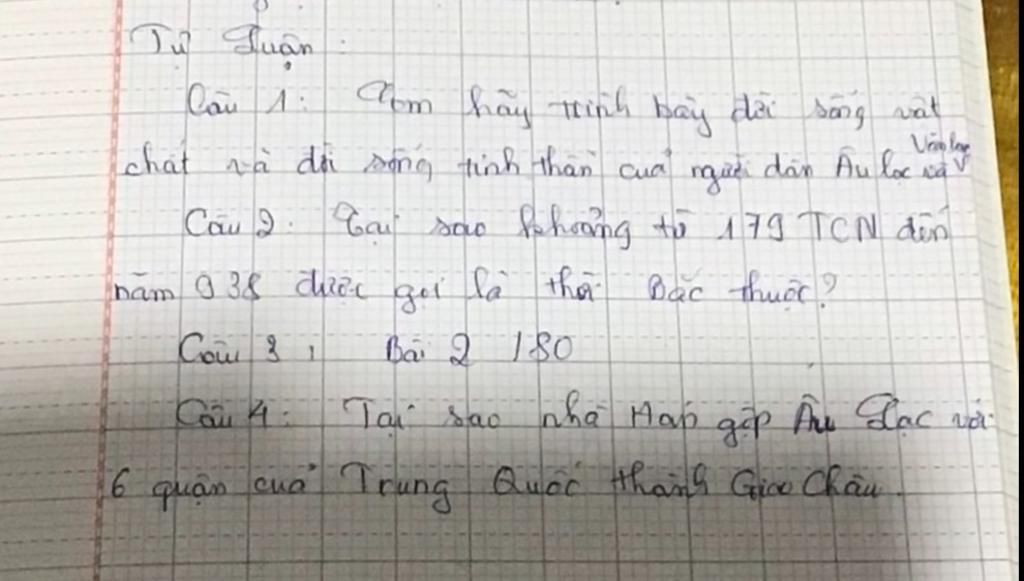 Tự Luận:
Câu 1: Em hãy trình bày đời sống vật
chất và đời sống tinh thần của người dân Âu Lạc và Văn Lang
Câu 2: Tại sao khoảng từ 179 TCN đến
năm 938 được gọi là thời Bắc thuộc?
Câu 3: Bài 2 /80
Câu 4: Tại sao nhà Hán gộp Âu Lạc với
6 quận của Trung Quốc thành Giao Châu.